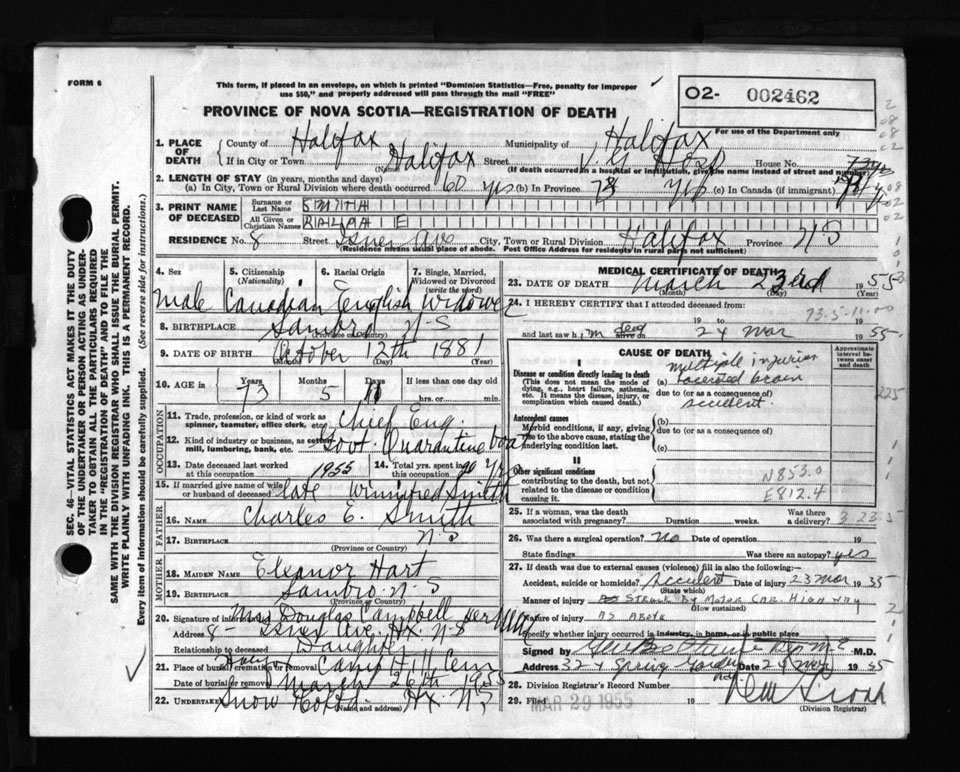 FORM 6
This form, if placed in an envelope, on which is printed "Dominion Statistics—Free, penalty for improper
use $50," and properly addressed will pass through the mail "FREE"
PROVINCE OF NOVA SCOTIA—REGISTRATION OF DEATH
02- 002462
For use of the Department only
SEC. 46—VITAL STATISTICS ACT MAKES IT THE DUTY
OF THE UNDERTAKER OR PERSON ACTING AS UNDER-
TAKER TO OBTAIN ALL THE PARTICULARS REQUIRED
IN THE "REGISTRATION OF DEATH" AND TO FILE THE
SAME WITH THE DIVISION REGISTRAR WHO SHALL ISSUE THE BURIAL PERMIT.
WRITE PLAINLY WITH UNFADING INK. THIS IS A PERMANENT RECORD.
Every item of information should be carefully supplied. (See reverse side for instructions.)
1. PLACE OF DEATH
County of Halifax Municipality of Halifax
If in City or Town Halifax Street V. G. Hosp House No.
(If death occurred in a hospital or institution, give the name instead of street and number)
2. LENGTH OF STAY (in years, months and days)
(a) In City, Town or Rural Division where death occurred 60 yrs (b) In Province 73 yrs (c) In Canada (if immigrant)
3. PRINT NAME OF DECEASED
Surname or Last Name SMITH
All Given or Christian Names RALPH E
RESIDENCE No. 8 Street Ave City, Town or Rural Division Halifax Province N S
(Residence means usual place of abode. Post Office Address for residents in rural parts not sufficient)
4. Sex Male
5. Citizenship (Nationality) Canadian
6. Racial Origin English
7. Single, Married, Widowed or Divorced (write the word) Widowed
8. BIRTHPLACE Sambro N-S
(Province or Country)
9. DATE OF BIRTH October 12th 1881
(Month) (Day) (Year)
10. AGE in Years Months Days If less than one day old
73 5 11 hrs. or min.
OCCUPATION
11. Trade, profession, or kind of work as spinner, teamster, office clerk, etc. Chief Eng.
12. Kind of industry or business, as cotton-mill, lumbering, bank, etc. Govt. Quarantine boat
13. Date deceased last worked at this occupation 1955 14. Total yrs. spent in this occupation yrs
15. If married give name of wife or husband of deceased late Winnifred Smith
FATHER
16. NAME Charles E. Smith
17. BIRTHPLACE N S
(Province or Country)
MOTHER
18. MAIDEN NAME Eleanor Hart
19. BIRTHPLACE Sambro N-S
(Province or Country)
20. Signature of informant Mrs Douglas Campbell
Address 8- Ave Hx. N-S
Relationship to deceased Daughter
21. Place of burial, cremation or removal Camp Hill Cem
Date of burial or removal March 26th 1955
22. UNDERTAKER Snow Hx N S
(Name and address)
MEDICAL CERTIFICATE OF DEATH
23. DATE OF DEATH March 23rd 1955
(Month) (Day) (Year)
24. I HEREBY CERTIFY that I attended deceased from:
73-5-11-00
19 to 19
and last saw him dead alive on 24 Mar 1955
CAUSE OF DEATH
Approximate interval between onset and death
I
Disease or condition directly leading to death
(This does not mean the mode of dying, e.g., heart failure, asthenia, etc. It means the disease, injury, or complication which caused death.)
multiple injuries
(a) lacerated brain
due to (or as a consequence of)
accident.
Antecedent causes
Morbid conditions, if any, giving rise to the above cause, stating the underlying condition last.
(b)
due to (or as a consequence of)
(c)
II
Other significant conditions contributing to the death, but not related to the disease or condition causing it.
N853.0
E812.4
25. If a woman, was the death associated with pregnancy? Duration weeks. Was there a delivery?
26. Was there a surgical operation? No Date of operation 19
State findings Was there an autopsy? yes
27. If death was due to external causes (violence) fill in also the following:—
Accident, suicide or homicide? Accident Date of injury 23 Mar 1955
(State which)
Manner of injury Struck By Motor Car. Highway
(How sustained)
Nature of injury As Above
Specify whether injury occurred in industry, in home, or in public place
Signed by M.D.
Address 32 Spring Garden Date 24 Mar 1955
28. Division Registrar's Record Number
29. Filed MAR 29 1955 19
(Division Registrar)